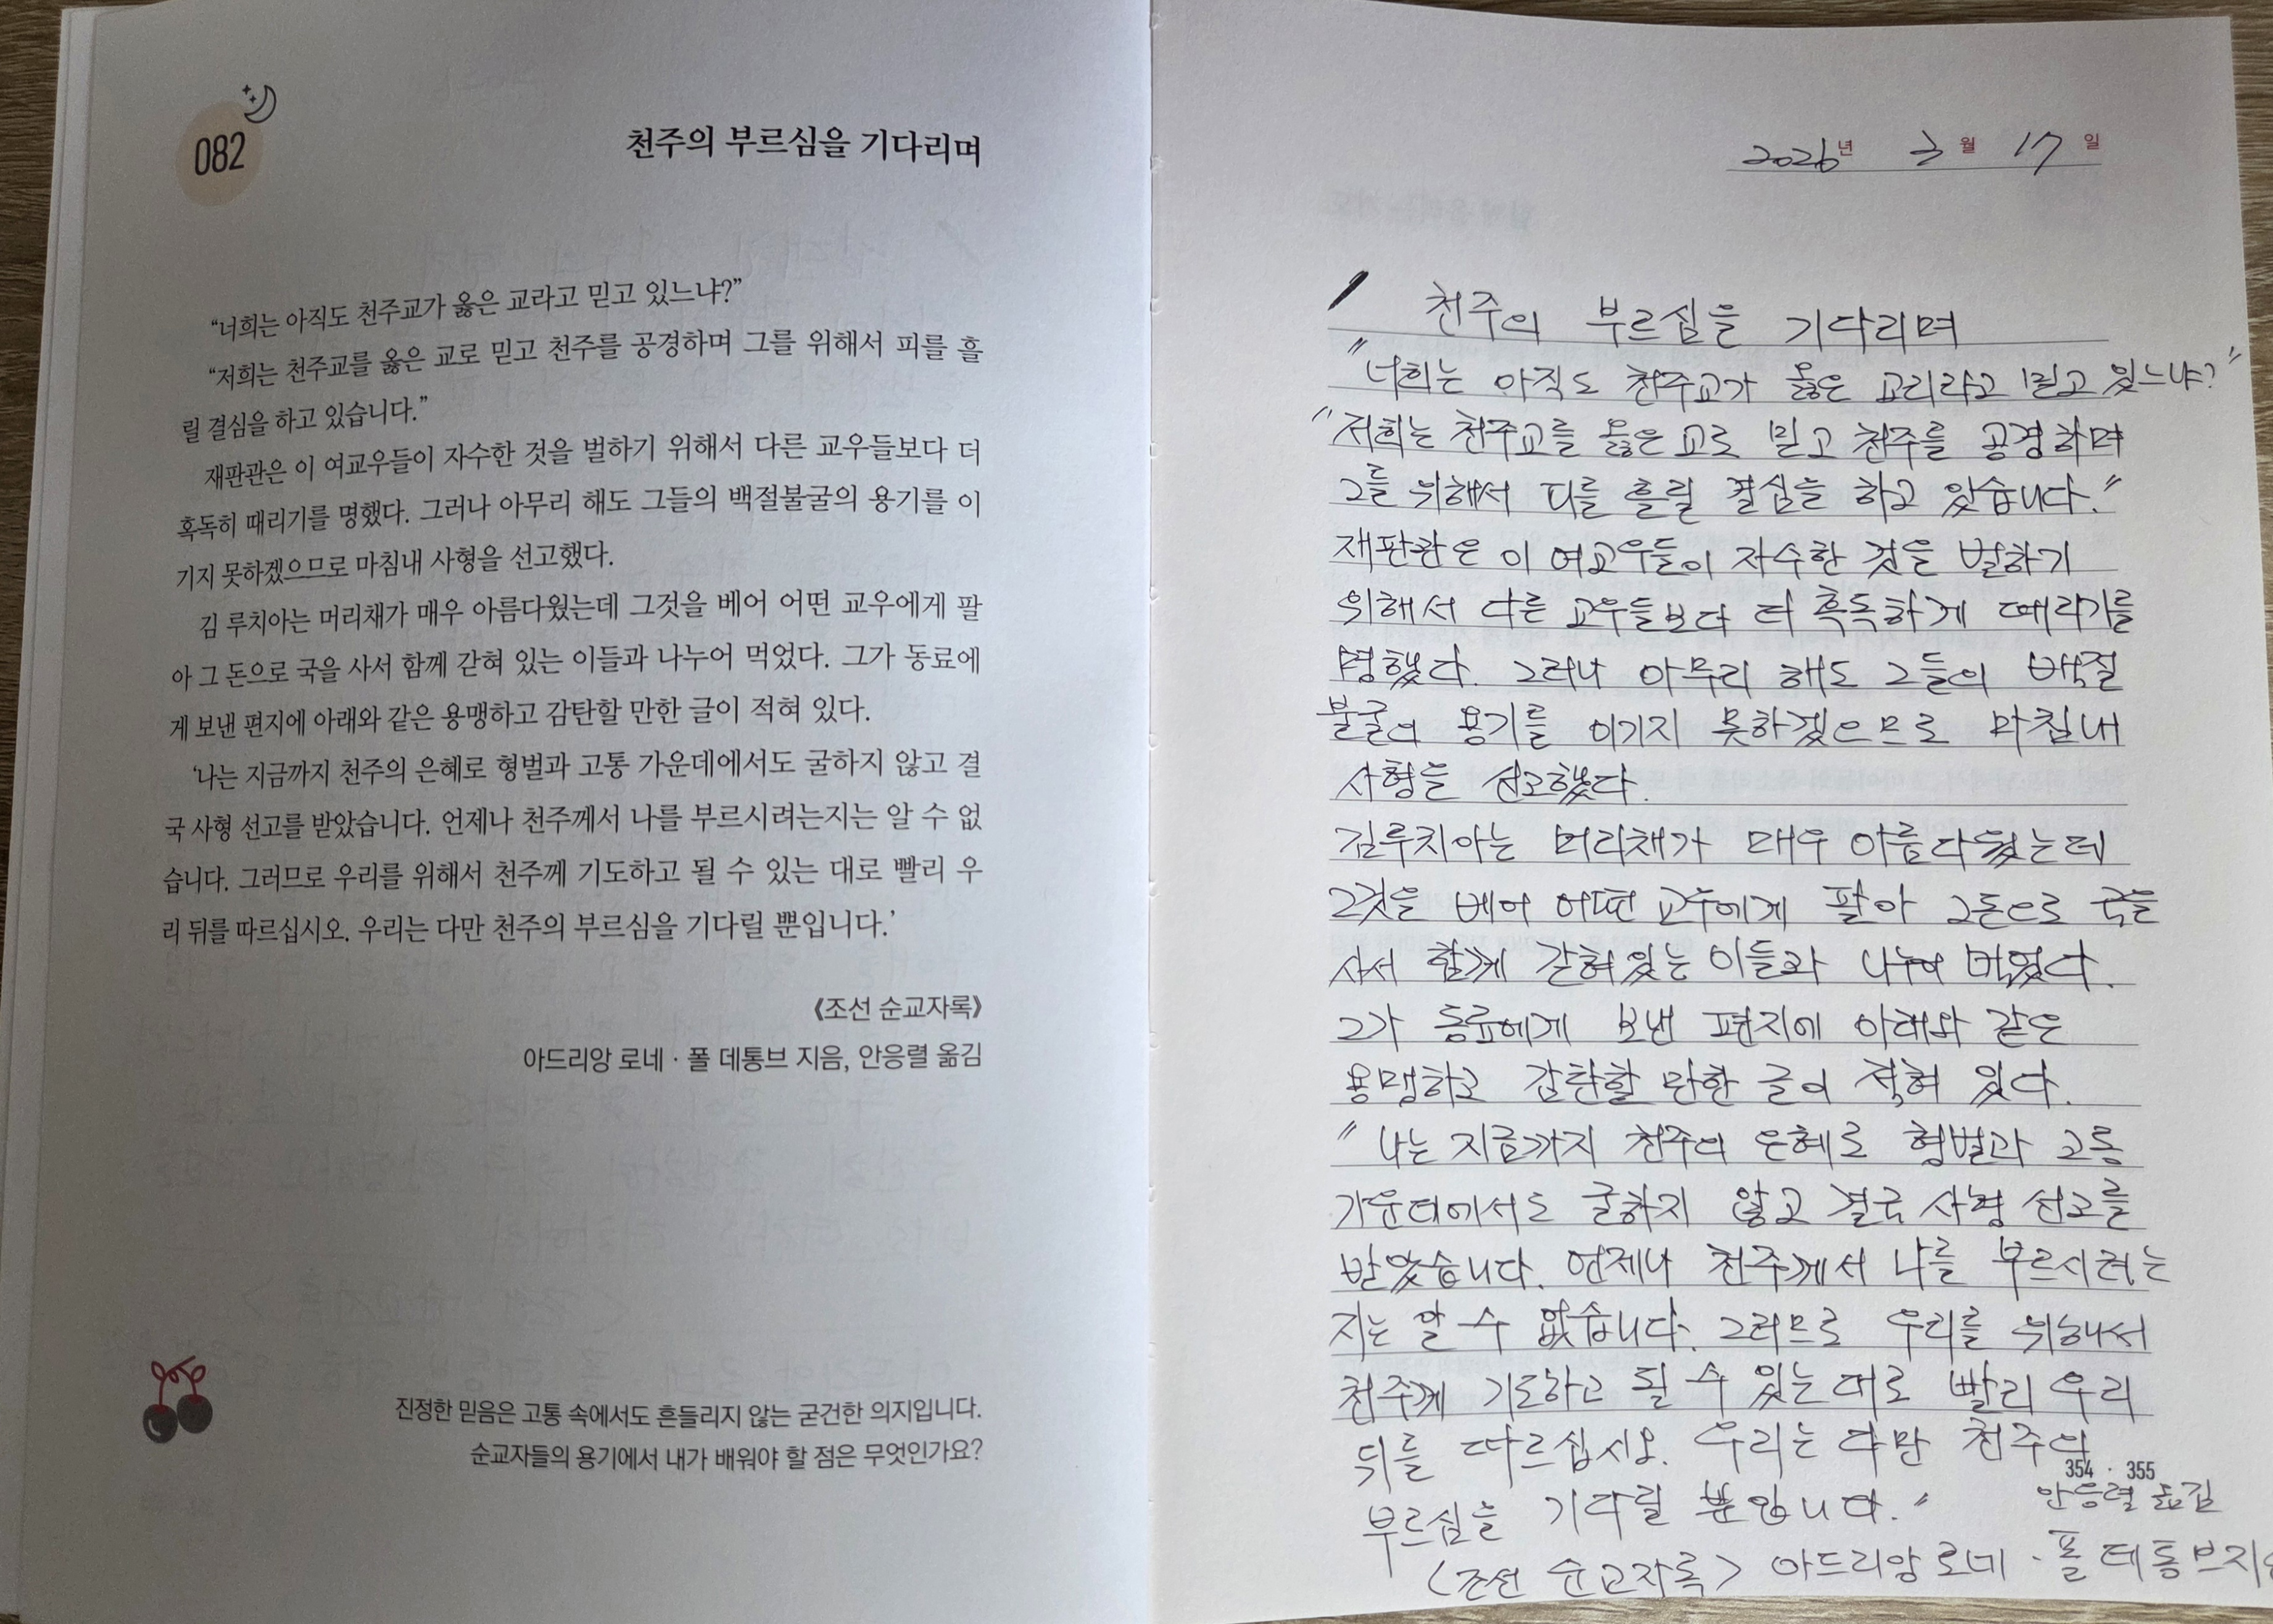 082
천주의 부르심을 기다리며
“너희는 아직도 천주교가 옳은 교라고 믿고 있느냐?”
“저희는 천주교를 옳은 교로 믿고 천주를 공경하며 그를 위해서 피를 흘
릴 결심을 하고 있습니다.”
재판관은 이 여교우들이 자수한 것을 벌하기 위해서 다른 교우들보다 더
혹독히 때리기를 명했다. 그러나 아무리 해도 그들의 백절불굴의 용기를 이
기지 못하겠으므로 마침내 사형을 선고했다.
김 루치아는 머리채가 매우 아름다웠는데 그것을 베어 어떤 교우에게 팔
아 그 돈으로 국을 사서 함께 갇혀 있는 이들과 나누어 먹었다. 그가 동료에
게 보낸 편지에 아래와 같은 용맹하고 감탄할 만한 글이 적혀 있다.
‘나는 지금까지 천주의 은혜로 형벌과 고통 가운데에서도 굴하지 않고 결
국 사형 선고를 받았습니다. 언제나 천주께서 나를 부르시려는지는 알 수 없
습니다. 그러므로 우리를 위해서 천주께 기도하고 될 수 있는 대로 빨리 우
리 뒤를 따르십시오. 우리는 다만 천주의 부르심을 기다릴 뿐입니다.’
《조선 순교자록》
아드리앙 로네 · 폴 데통브 지음, 안응렬 옮김
진정한 믿음은 고통 속에서도 흔들리지 않는 굳건한 의지입니다.
순교자들의 용기에서 내가 배워야 할 점은 무엇인가요?
2026년 3월 17일
천주의 부르심을 기다리며
"너희는 아직도 천주교가 옳은 교리라고 믿고 있느냐?"
"저희는 천주교를 옳은 교로 믿고 천주를 공경하며
그를 위해서 피를 흘릴 결심을 하고 있습니다."
재판관은 이 여교우들이 자수한 것을 벌하기
위해서 다른 교우들보다 더 혹독하게 때리기를
명했다. 그러나 아무리 해도 그들의 백절
불굴의 용기를 이기지 못하겠으므로 마침내
사형을 선고했다.
김루치아는 머리채가 매우 아름다웠는데
그것을 베어 어떤 교우에게 팔아 그돈으로 국을
사서 함께 갇혀있는 이들과 나누어 먹었다.
그가 동료에게 보낸 편지에 아래와 같은
용맹하고 감탄할 만한 글이 적혀 있다.
"나는 지금까지 천주의 은혜로 형벌과 고통
가운데에서도 굴하지 않고 결국 사형 선고를
받았습니다. 언제나 천주께서 나를 부르시려는
지는 알 수 없습니다. 그러므로 우리를 위해서
천주께 기도하고 될 수 있는 대로 빨리 우리
뒤를 따르십시오. 우리는 다만 천주의
354 · 355
부르심을 기다릴 뿐입니다."
안응렬 옮김
<조선 순교자록> 아드리앙 로네 · 폴 데통브지음